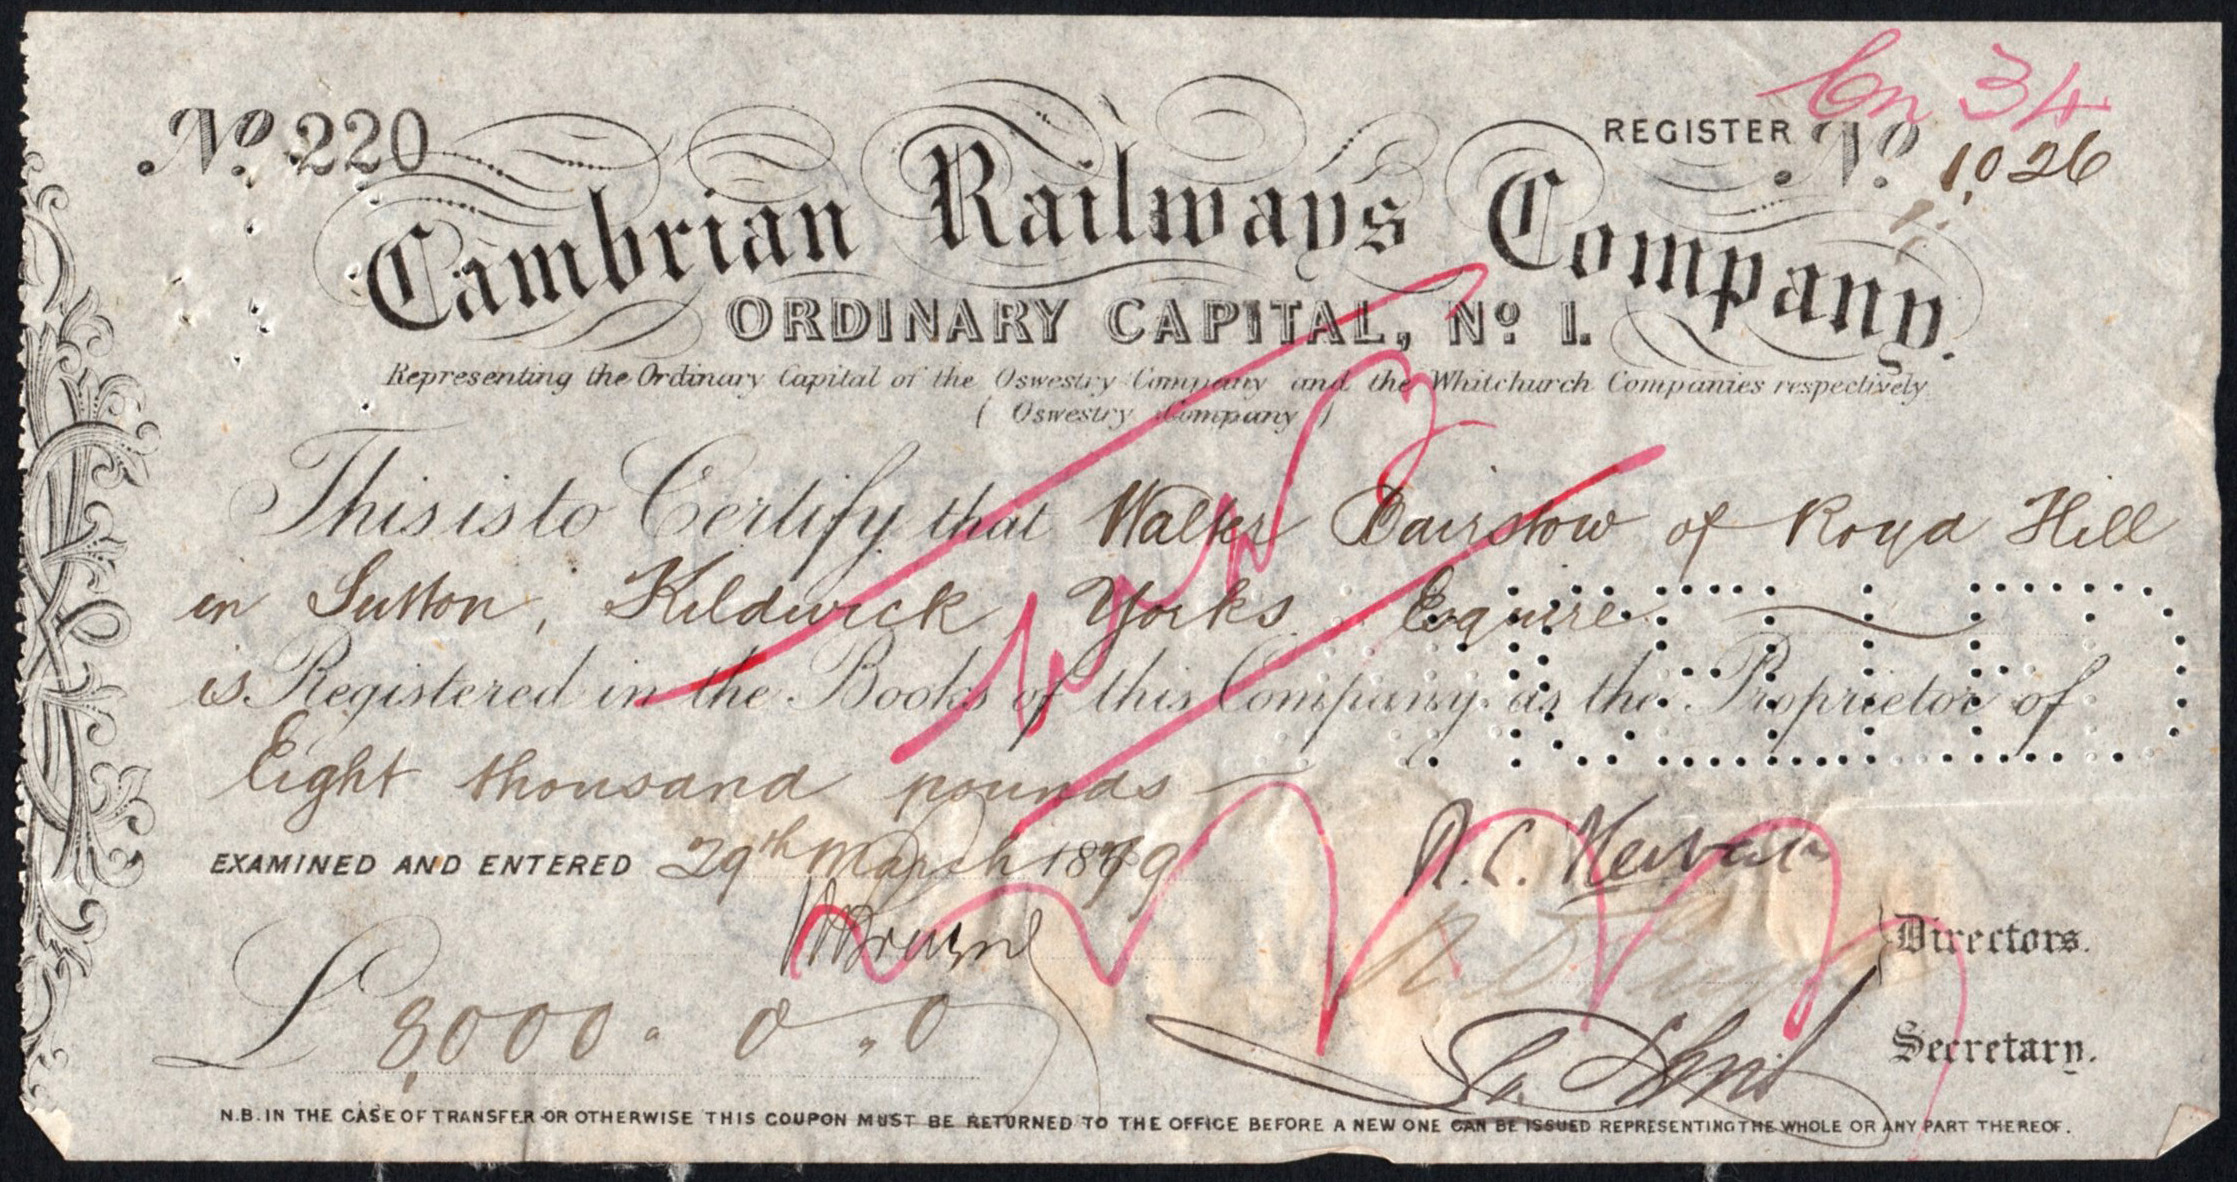 Cn 34
No. 220
REGISTER No. 1,026
Cambrian Railways Company.
ORDINARY CAPITAL, No 1.
Representing the Ordinary Capital of the Oswestry Company and the Whitchurch Companies respectively
( Oswestry Company )
This is to Certify that Walter Bairstow of Royd Hill
in Sutton, Kildwick, Yorks. Esquire
is Registered in the Books of this Company as the Proprietor of
Eight thousand pounds
EXAMINED AND ENTERED 29th March 1879
Directors.
£ 8,000 " 0 " 0
Secretary.
N.B. IN THE CASE OF TRANSFER OR OTHERWISE THIS COUPON MUST BE RETURNED TO THE OFFICE BEFORE A NEW ONE CAN BE ISSUED REPRESENTING THE WHOLE OR ANY PART THEREOF.